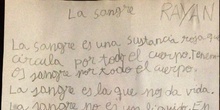 La sangre RAYAN
La sangre es una sustancia rosa que
circula por todo el cuerpo. Tenemos
5l sangre por todo el cuerpo.
La sangre es la que nos da vida.
la sangre no es un liquido. E